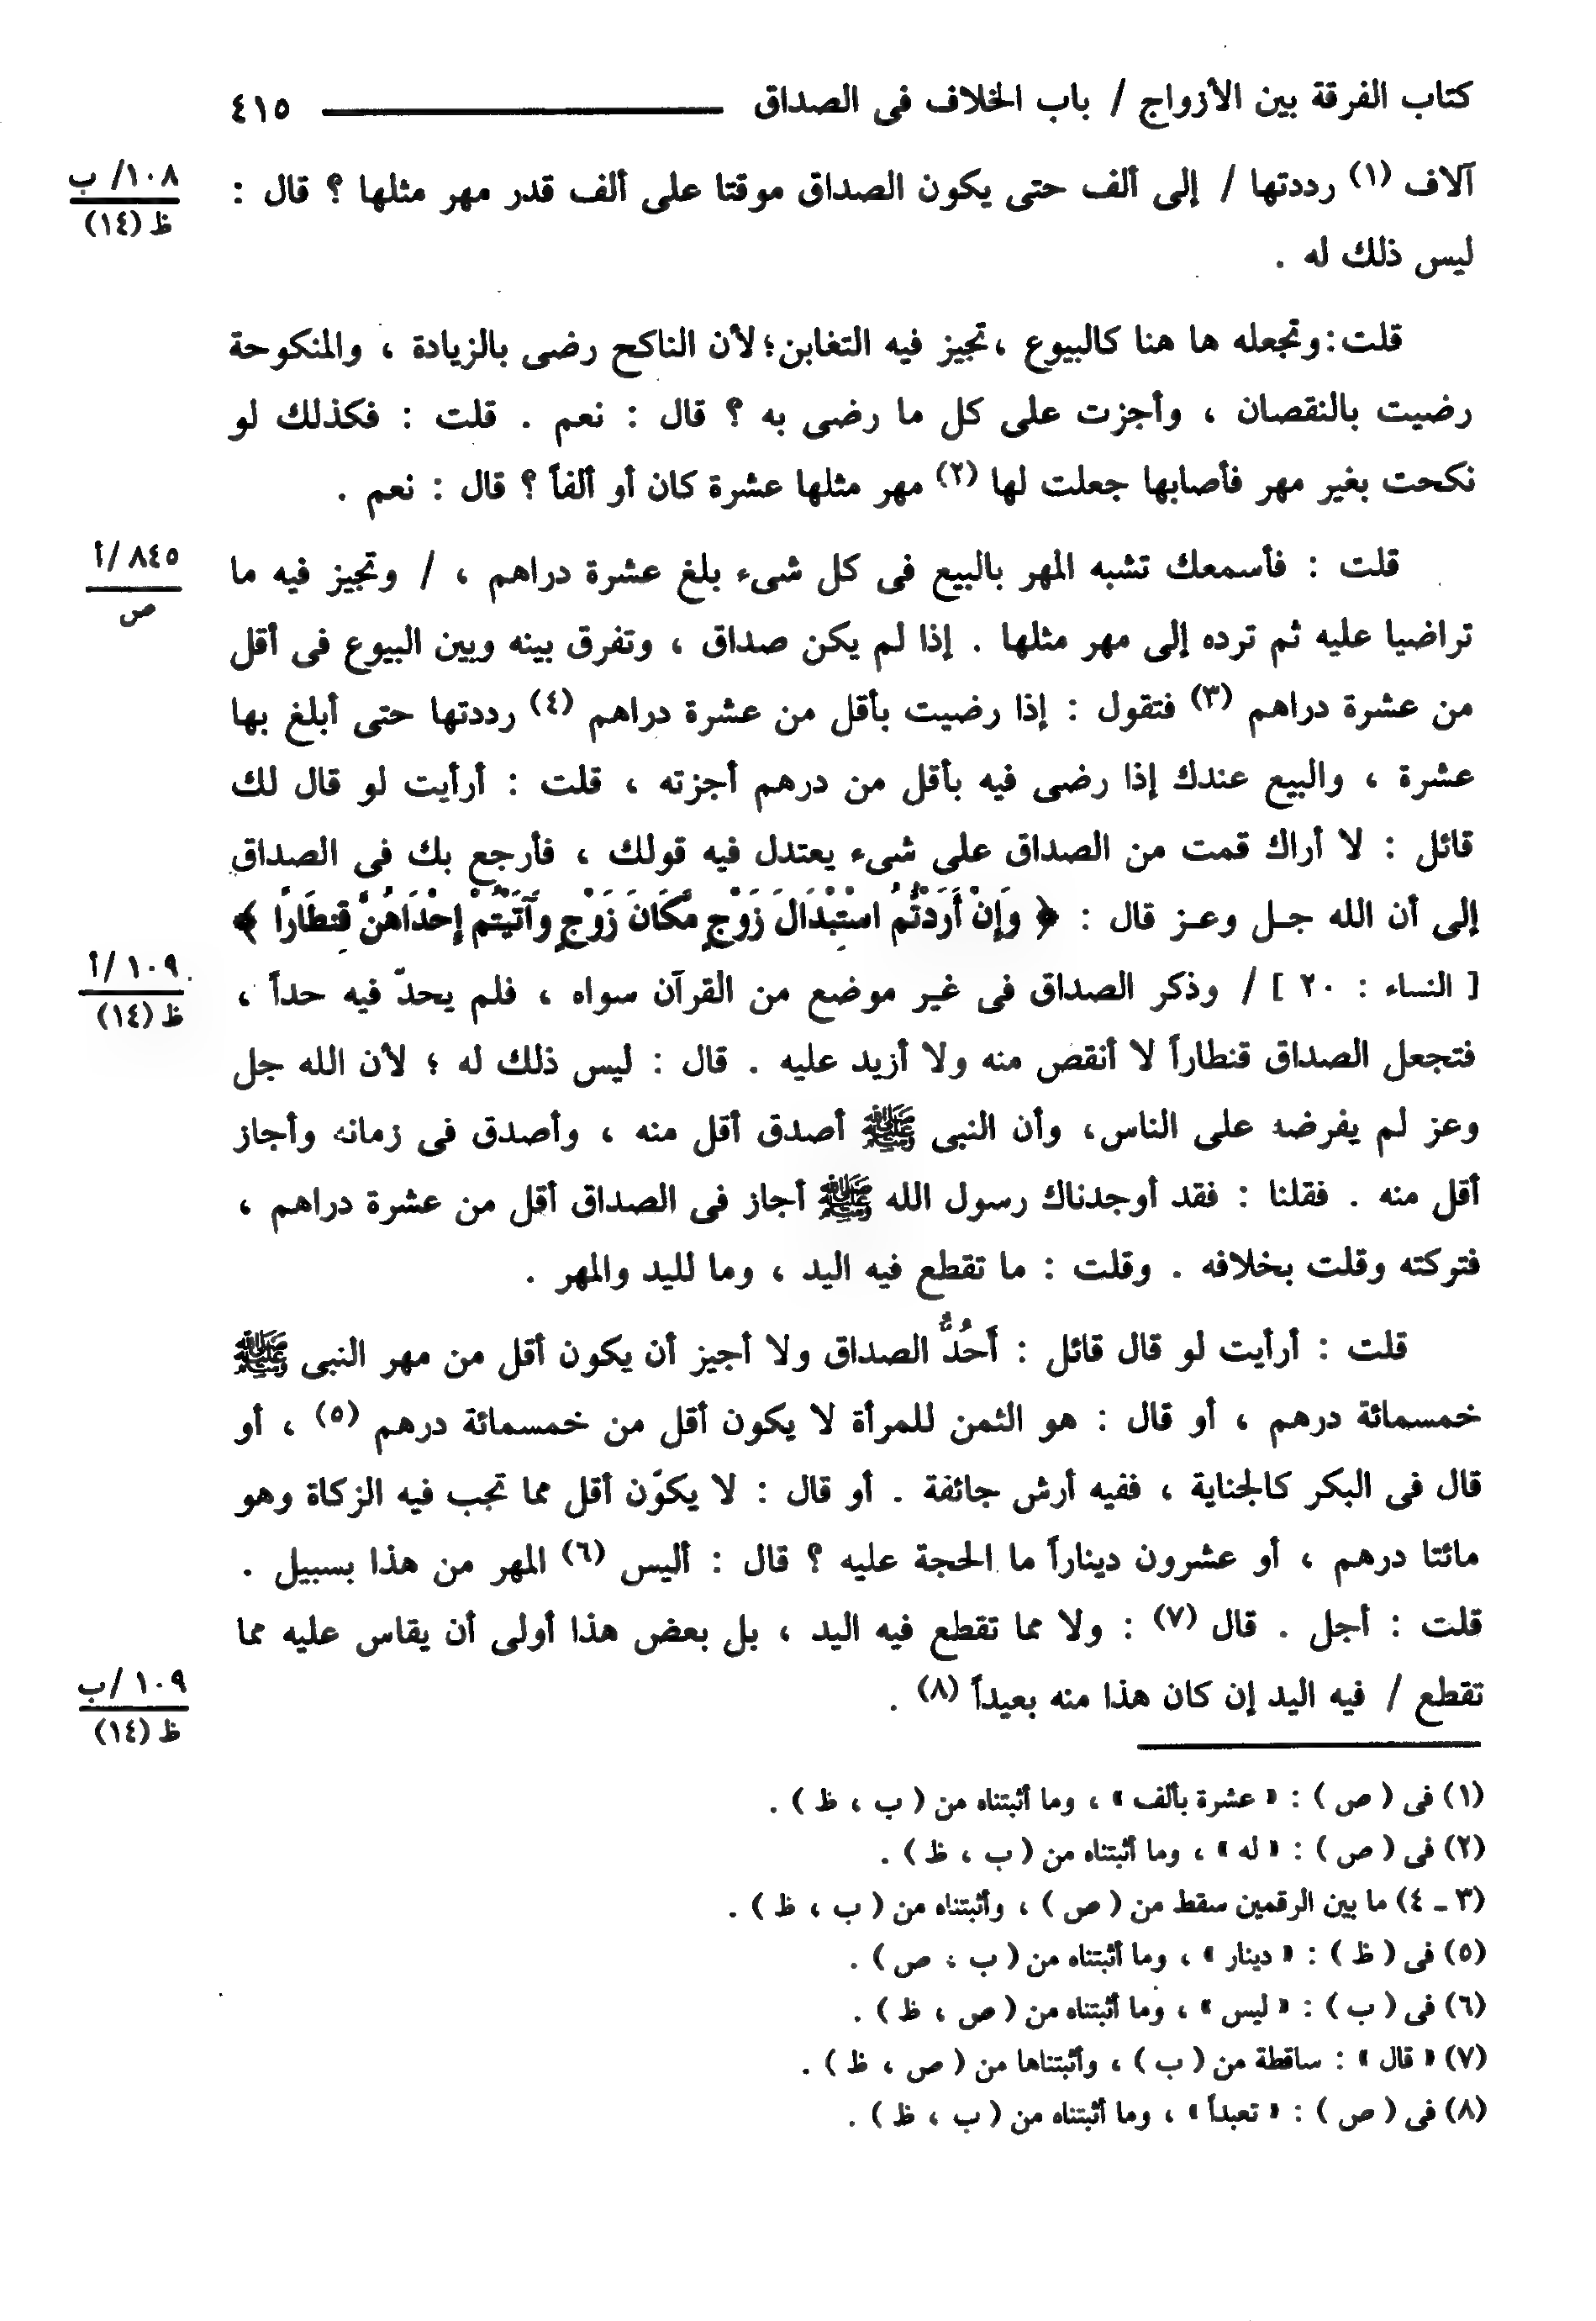 كتاب الفرقة بين الأزواج / باب الخلاف فى الصداق ٤١٥
آلاف (١) رددتها / إلى ألف حتى يكون الصداق موقتا على ألف قدر مهر مثلها ؟ قال :
١٠٨/ ب
ظ (١٤)
ليس ذلك له .
قلت :وتجعله ها هنا كالبيوع ،تجيز فيه التغابن؛لأن الناكح رضى بالزيادة ، والمنكوحة
رضيت بالنقصان ، وأجزت على كل ما رضى به ؟ قال : نعم . قلت : فكذلك لو
نكحت بغير مهر فأصابها جعلت لها (٢) مهر مثلها عشرة كان أو ألفاً ؟ قال : نعم .
قلت : فأسمعك تشبه المهر بالبيع فى كل شىء بلغ عشرة دراهم ، / وتجيز فيه ما
٨٤٥ /أ
ص
تراضيا عليه ثم ترده إلى مهر مثلها . إذا لم يكن صداق ، وتفرق بينه وبين البيوع فى أقل
من عشرة دراهم (٣) فتقول : إذا رضيت بأقل من عشرة دراهم (٤) رددتها حتى أبلغ بها
عشرة ، والبيع عندك إذا رضى فيه بأقل من درهم أجزته ، قلت : أرأيت لو قال لك
قائل : لا أراك قمت من الصداق على شىء يعتدل فيه قولك ، فأرجع بك فى الصداق
إلى أن الله جل وعز قال : ﴿ وَإِنْ أَرَدْتُمُ اسْتِبْدَالَ زَوْجٍ مَّكَانَ زَوْجٍ وَآتَيْتُمْ إِحْدَاهُنَّ قِنطَارًا ﴾
[ النساء : ٢٠ ] / وذكر الصداق فى غير موضع من القرآن سواه ، فلم يحدّ فيه حداً ،
١٠٩ /أ
ظ (١٤)
فتجعل الصداق قنطاراً لا أنقص منه ولا أزيد عليه . قال : ليس ذلك له ؛ لأن الله جل
وعز لم يفرضه على الناس، وأن النبى ﷺ أصدق أقل منه ، وأصدق فى زمانه وأجاز
أقل منه . فقلنا : فقد أوجدناك رسول الله ﷺ أجاز فى الصداق أقل من عشرة دراهم ،
فتركته وقلت بخلافه . وقلت : ما تقطع فيه اليد ، وما لليد والمهر .
قلت : أرأيت لو قال قائل : أَحُدُّ الصداق ولا أجيز أن يكون أقل من مهر النبى ﷺ
خمسمائة درهم ، أو قال : هو الثمن للمرأة لا يكون أقل من خمسمائة درهم (٥) ، أو
قال فى البكر كالجناية ، ففيه أرش جائفة . أو قال : لا يكوّن أقل مما تجب فيه الزكاة وهو
مائتا درهم ، أو عشرون ديناراً ما الحجة عليه ؟ قال : أليس (٦) المهر من هذا بسبيل .
قلت : أجل . قال (٧) : ولا مما تقطع فيه اليد ، بل بعض هذا أولى أن يقاس عليه مما
تقطع / فيه اليد إن كان هذا منه بعيداً (٨) .
١٠٩ /ب
ظ (١٤)
(١) فى ( ص ) : « عشرة بألف » ، وما أثبتناه من ( ب ، ظ ) .
(٢) فى ( ص ) : « له » ، وما أثبتناه من ( ب ، ظ ) .
(٣ ـ ٤) ما بين الرقمين سقط من ( ص ) ، وأثبتناه من ( ب ، ظ ) .
(٥) فى ( ظ ) : « دينار » ، وما أثبتناه من ( ب ، ص ) .
(٦) فى ( ب ) : « ليس » ، وما أثبتناه من ( ص ، ظ ) .
(٧) « قال » : ساقطة من ( ب ) ، وأثبتناها من ( ص ، ظ ) .
(٨) فى ( ص ) : « تعبداً » ، وما أثبتناه من ( ب ، ظ ) .